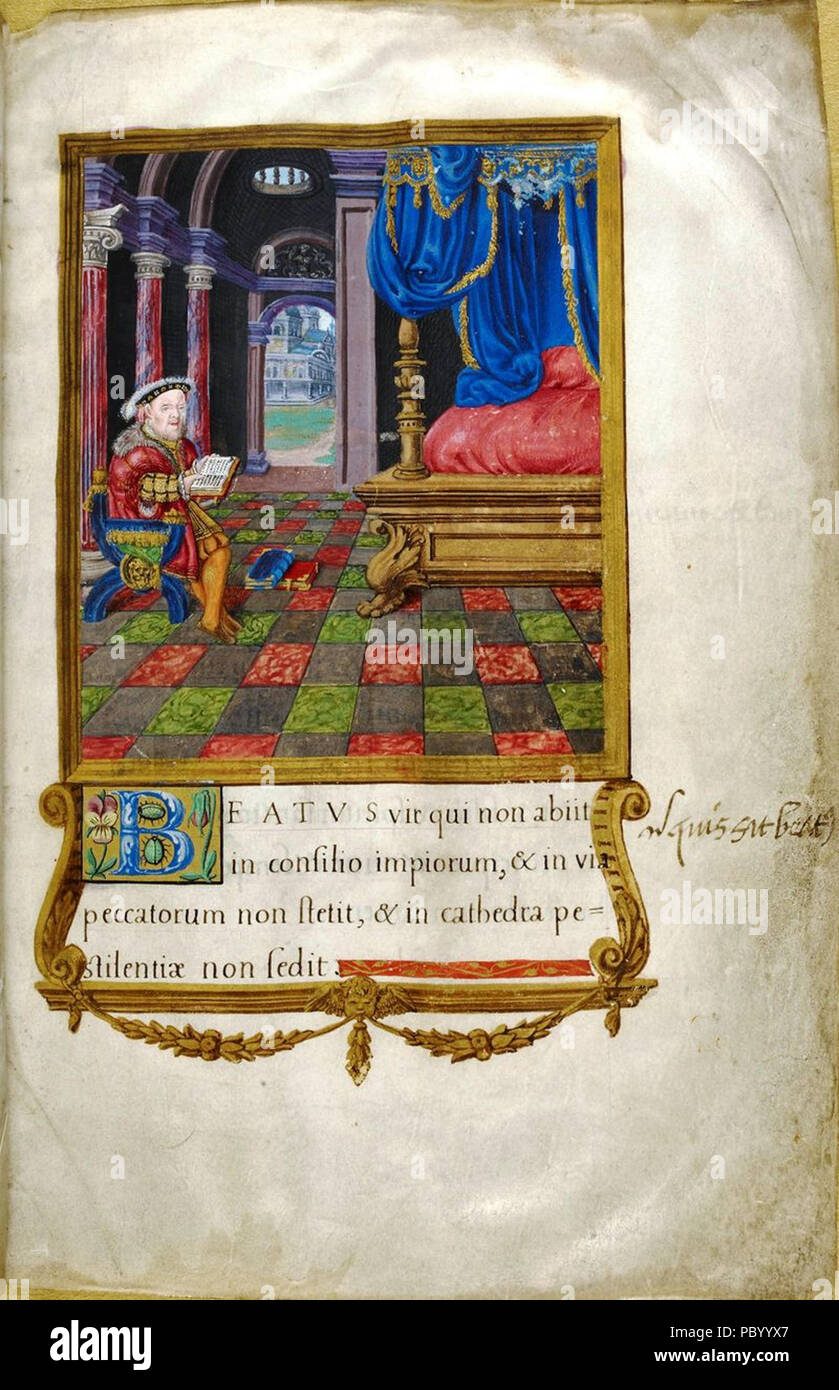 BEATVS vir qui non abiit
in conſilio impiorum, & in via
peccatorum non ſtetit, & in cathedra pe=
ſtilentiæ non ſedit.
quis sit beat9
alamy
Image ID: PBYYX7
www.alamy.com